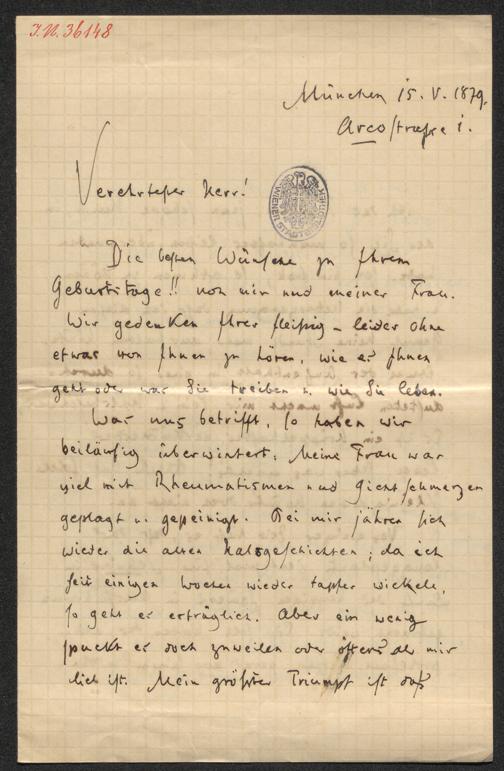 I.N. 36148
München 15. V. 1879.
Arcostraße 1.
Verehrtester Herr!
Die besten Wünsche zu Ihrem
Geburtstage!! von mir und meiner Frau.
Wir gedenken Ihrer fleißig – leider ohne
etwas von Ihnen zu hören, wie es Ihnen
geht oder was Sie treiben u. wie Sie leben.
Was uns betrifft, so haben wir
beiläufig überwintert; meine Frau war
viel mit Rheumatismen und Gichtschmerzen
geplagt u. gepeinigt. Bei mir jähren sich
wieder die alten Halsgeschichten; da ich
seit einigen Wochen wieder tapfer wickele,
so geht es erträglich. Aber ein wenig
spuckt es doch zuweilen oder öfters als mir
lieb ist. Mein größter Triumpf ist daß